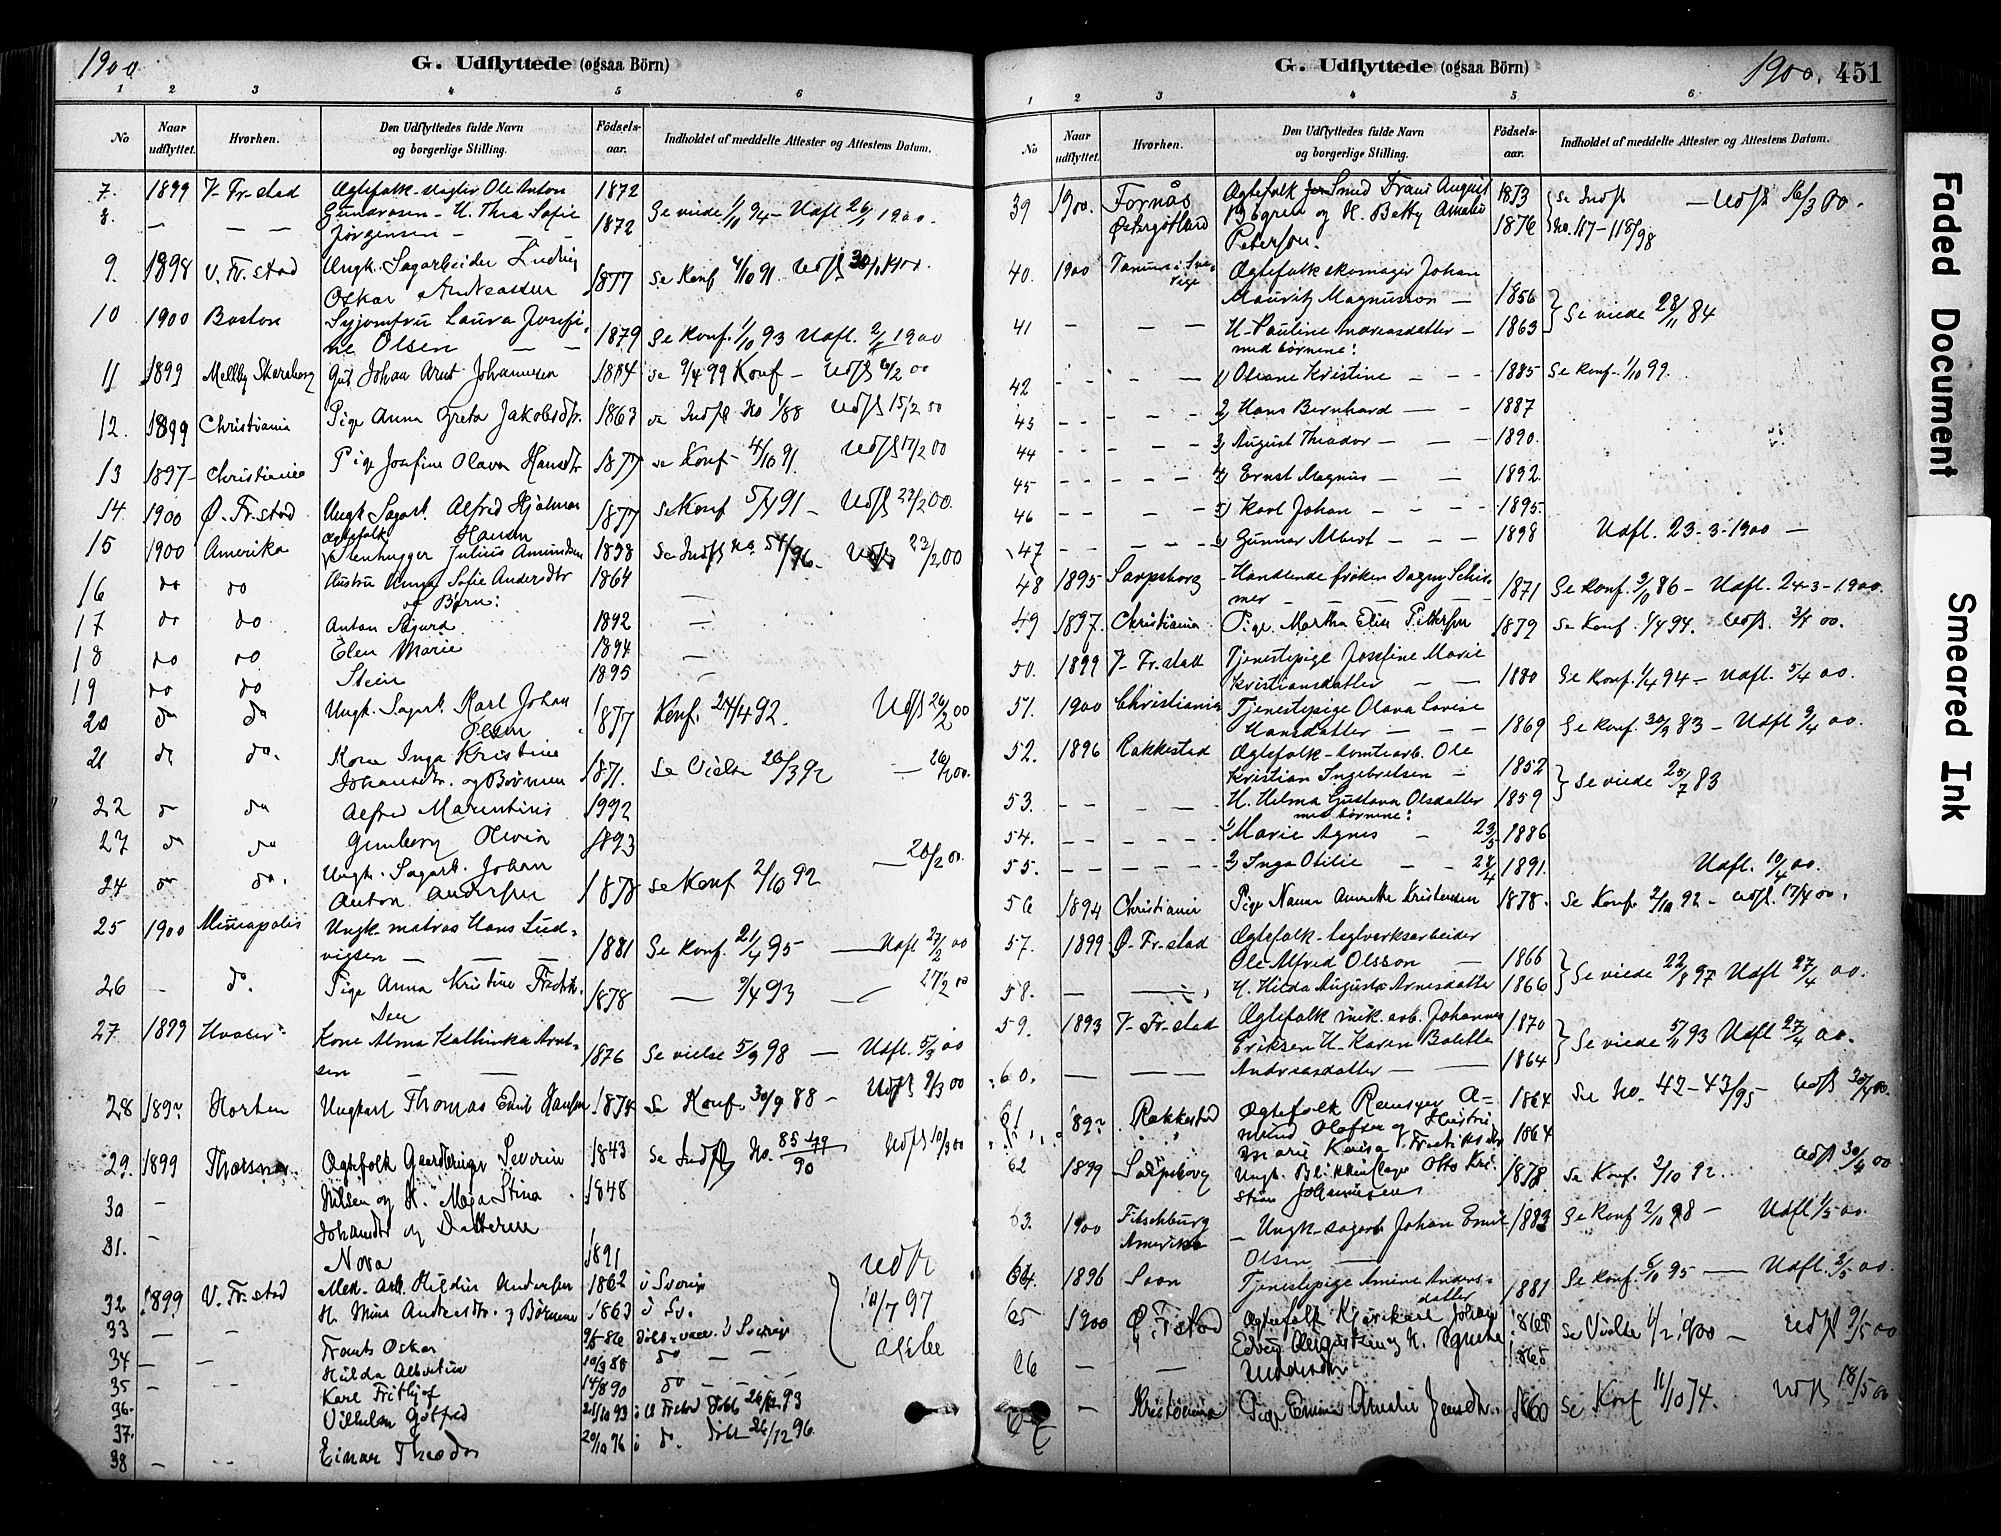 1900
G. Udflyttede (ogsaa Börn)
1 2 3 4 5 6
No
Naar udflyttet.
Hvorhen.
Den Udflyttedes fulde Navn og borgerlige Stilling.
Födsels-aar.
Indholdet af meddelte Attester og Attestens Datum.
7. 1899 V. Fr.stad Ægtefolk Ole Anton 1872
8. — — — Gundersen - H. Thea Sofie 1872 Se viede 1/10 94 - Udfl 1900.
Jörgensen —
9. 1898 V. Fr.stad Ungk. Sagarbeider Ludvig
Oskar Andreassen 1877 Se Konf 4/10 91. Udfl 30/1 1900.
10 1900 Boston Syjomfru Laura Josefi-
ne Olsen — — 1879 Se Konf. 1/10 93 Udfl. 1900
11 1899 Gut Johan Arnt Johannesen 1884 se 9/4 99 Konf - Udfl /2 00
12. 1899 Christiania Pige Anna Greta Jakobsdtr. 1863 se Indfl No 1/88 Udfl 15/2 00
13 1897 Christiania Pige Josefine Olava Hansdtr 1877 se Konf - 4/10 91. Udfl 17/2 00
14. 1900 Ø. Fr.stad Ungk Sagarb. Alfred Hjalmar
Hansen 1877 Se Konf 5/4 91 - Udfl 22/2 00.
15 1900 Amerika Ægtefolk Stenhugger Julius Amundsen 1898 Se Indfl No 54/96. Udfl 23/2 00
16 do do Hustru Anna Sofie Andersdtr 1864 —
og Børn:
17 do do Anton Sigurd 1892 —
18 do do Elen Marie 1894 —
19 do do Stein 1895
20 do do Ungk. Sagarb. Karl Johan
Olsen 1877 Konf. 24/4 92. Udfl 26/2 00
21 do do. Kone Inga Kristine
Johansdtr. og Børnene 1871. Se Vielse 26/3 92 — 26/2 00.
22 do do Alfred Marentius 1992
23 do do Gunborg Olivia 1893
24 do do. Ungk. Sagarb. Johan
Anton Andersen 1878 se Konf 2/10 92 — 26/2 00.
25 1900 Minneapolis Ungk. matros Hans Lud-
vigsen — — 1881 Se Konf. 21/4 95 — Udfl 27/2 00
26 - do. Pige Anna Kristine Fredrik-
sen 1878 — 9/4 93 — 27/2 00
27 1899 Hvaler Kone Alma Kathinka Arnt-
sen — — 1876 Se vielse 5/9 98 — Udfl. 5/3 00
28 189? Horten Ungkarl Thomas Emil Hansen 1874 Se Konf. 30/9 88 - Udfl 9/3 00
29. 1899 Ægtefolk Severin 1843 Se Indfl No. 85-79/90 Udfl 10/3 00
30 — Nilsen og H. Maja Stina 1848
Johansdtr og Datteren
31. — Nora 1891
32 1899 V. Fr.stad Mek. Arb. Andersen 1862 i Sverige Udfl
33 — — H. Mina Andreasdtr. og Børnene 1863 i Sv. /7 97
34 — — Frants Oskar 86 i Sverige
35 — — Hilda Albertine 10/3 88 do — —
36. Karl Fritjof 14/8 90 do — —
37. Vilhelm Gotfred 21/10 93 i V. Frstad 93
38 — — Einar Theodor 20/10 96 i do. døbt 26/12 96.
G. Udflyttede (ogsaa Börn)
1900. 451
1 2 3 4 5 6
No
Naar udflyttet.
Hvorhen.
Den Udflyttedes fulde Navn og borgerlige Stilling.
Födsels-aar.
Indholdet af meddelte Attester og Attestens Datum.
39 1900. Fornås Ægtefolk Smed Frans August 1873 Se Indfl — Udfl 16/3 00.
Østergötland og H. Betty Amalie 1876 No. 117-118/98
Peterson.
40. 1900 Tanum i Sve-
rige Ægtefolk skomager Johan
Mauritz Magnusson — 1856
41 — — — H. Pauline Mariasdatter - 1863 Se viede 28/11 84
med børnene:
42 - - - 1) Oleane Kristine — — 1885 Se Konf. 1/10 99.
43 - - - 2) Hans Bernhard — — 1887
44 - - - 3) August Theodor — — 1890.
45 - - - 4) Ernst Magnus — — 1892.
46 - - - 5) Karl Johan — — 1895.
47 - - - 6) Gunnar Albert — — 1898 Udfl. 23-3-1900 —
48 1895 Sarpsborg Handlende frøken Dagny Schir-
mer — — 1871 Se Konf. 3/10 86 - Udfl. 24-3-1900.
49 1897. Christiania Pige Martha Elise Pettersen 1879 Se Konf. 1/4 94. Udfl. 3/4 00.
50. 1899 V. Fr.stad Tjenestepige Josefine Marie
Kristiansdatter — — 1880 Se Konf. 1/4 94 - Udfl. 5/4 00.
51. 1900 Christiania Tjenestepige Olava Lovise
Hansdatter — — 1869 Se Konf. 30/9 83 - Udfl 9/4 00.
52. 1896 Rakkestad Ægtefolk - tomtearb. Ole
Kristian Ingebretsen — 1852
53. - - - H. Helma Gustava Olsdatter 1859 Se viede 25/7 83
med børnene:
54. - - - 1) Marie Agnes - 23/5 1886
55. - - - 2) Inga Otilie - 1891. Udfl. 10/4 00.
56 1894 Christiania Pige Nanna Annette Kristensen 1878. Se Konf. 2/10 92 - Udfl. 17/4 00.
57. 1899 Ø. Fr.stad Ægtefolk - teglverksarbeider
Ole Alfred Olsson — 1866
58. — — H. Hilda Augusta Arnesdatter 1866 Se viede 22/8 97 Udfl 27/4 00.
59. 1893 V. Fr.stad Ægtefolk mek. arb. Johannes 1870
Eriksen H. Karen Bolette Se viede 5/11 93 Udfl 27/4 00.
60. — — Andreasdatter — 1864
61 189? Rakkestad Ægtefolk A- 1864 Se No. 42-43/95 - Udfl 30/4 00.
mund Olafsen og Hustru
Marie Lovisa Fredriksdtr 1864
62 1899 Sarpsborg Ungk. Blikkenslager Otto Kri-
stian Johannesen 1878 Se Konf. 2/10 92. Udfl 30/4 00
63. 1900 Fitschburg
Amerika — Ungk. sagarb Johan Emil 1883 Se Konf 2/10 98 — Udfl 1/5 00.
Olsen —
64. 1896 Soon Tjenestepige Amine Anders-
datter 1881 Se Konf. 6/10 95 — Udfl. 3/5 00.
65 1900 Ø. Frstad Ægtefolk Kjørekarl Johan 1868 Se Vielse 11/2 1900 — Udfl 9/5 00
66 — — Edvin og H. Agnete 1865
67 — Kristiania Pige Emma Amalie Jensdtr. 1860 Se Konf 11/10 74. Udfl 18/5 00
Faded Document
Smeared Ink